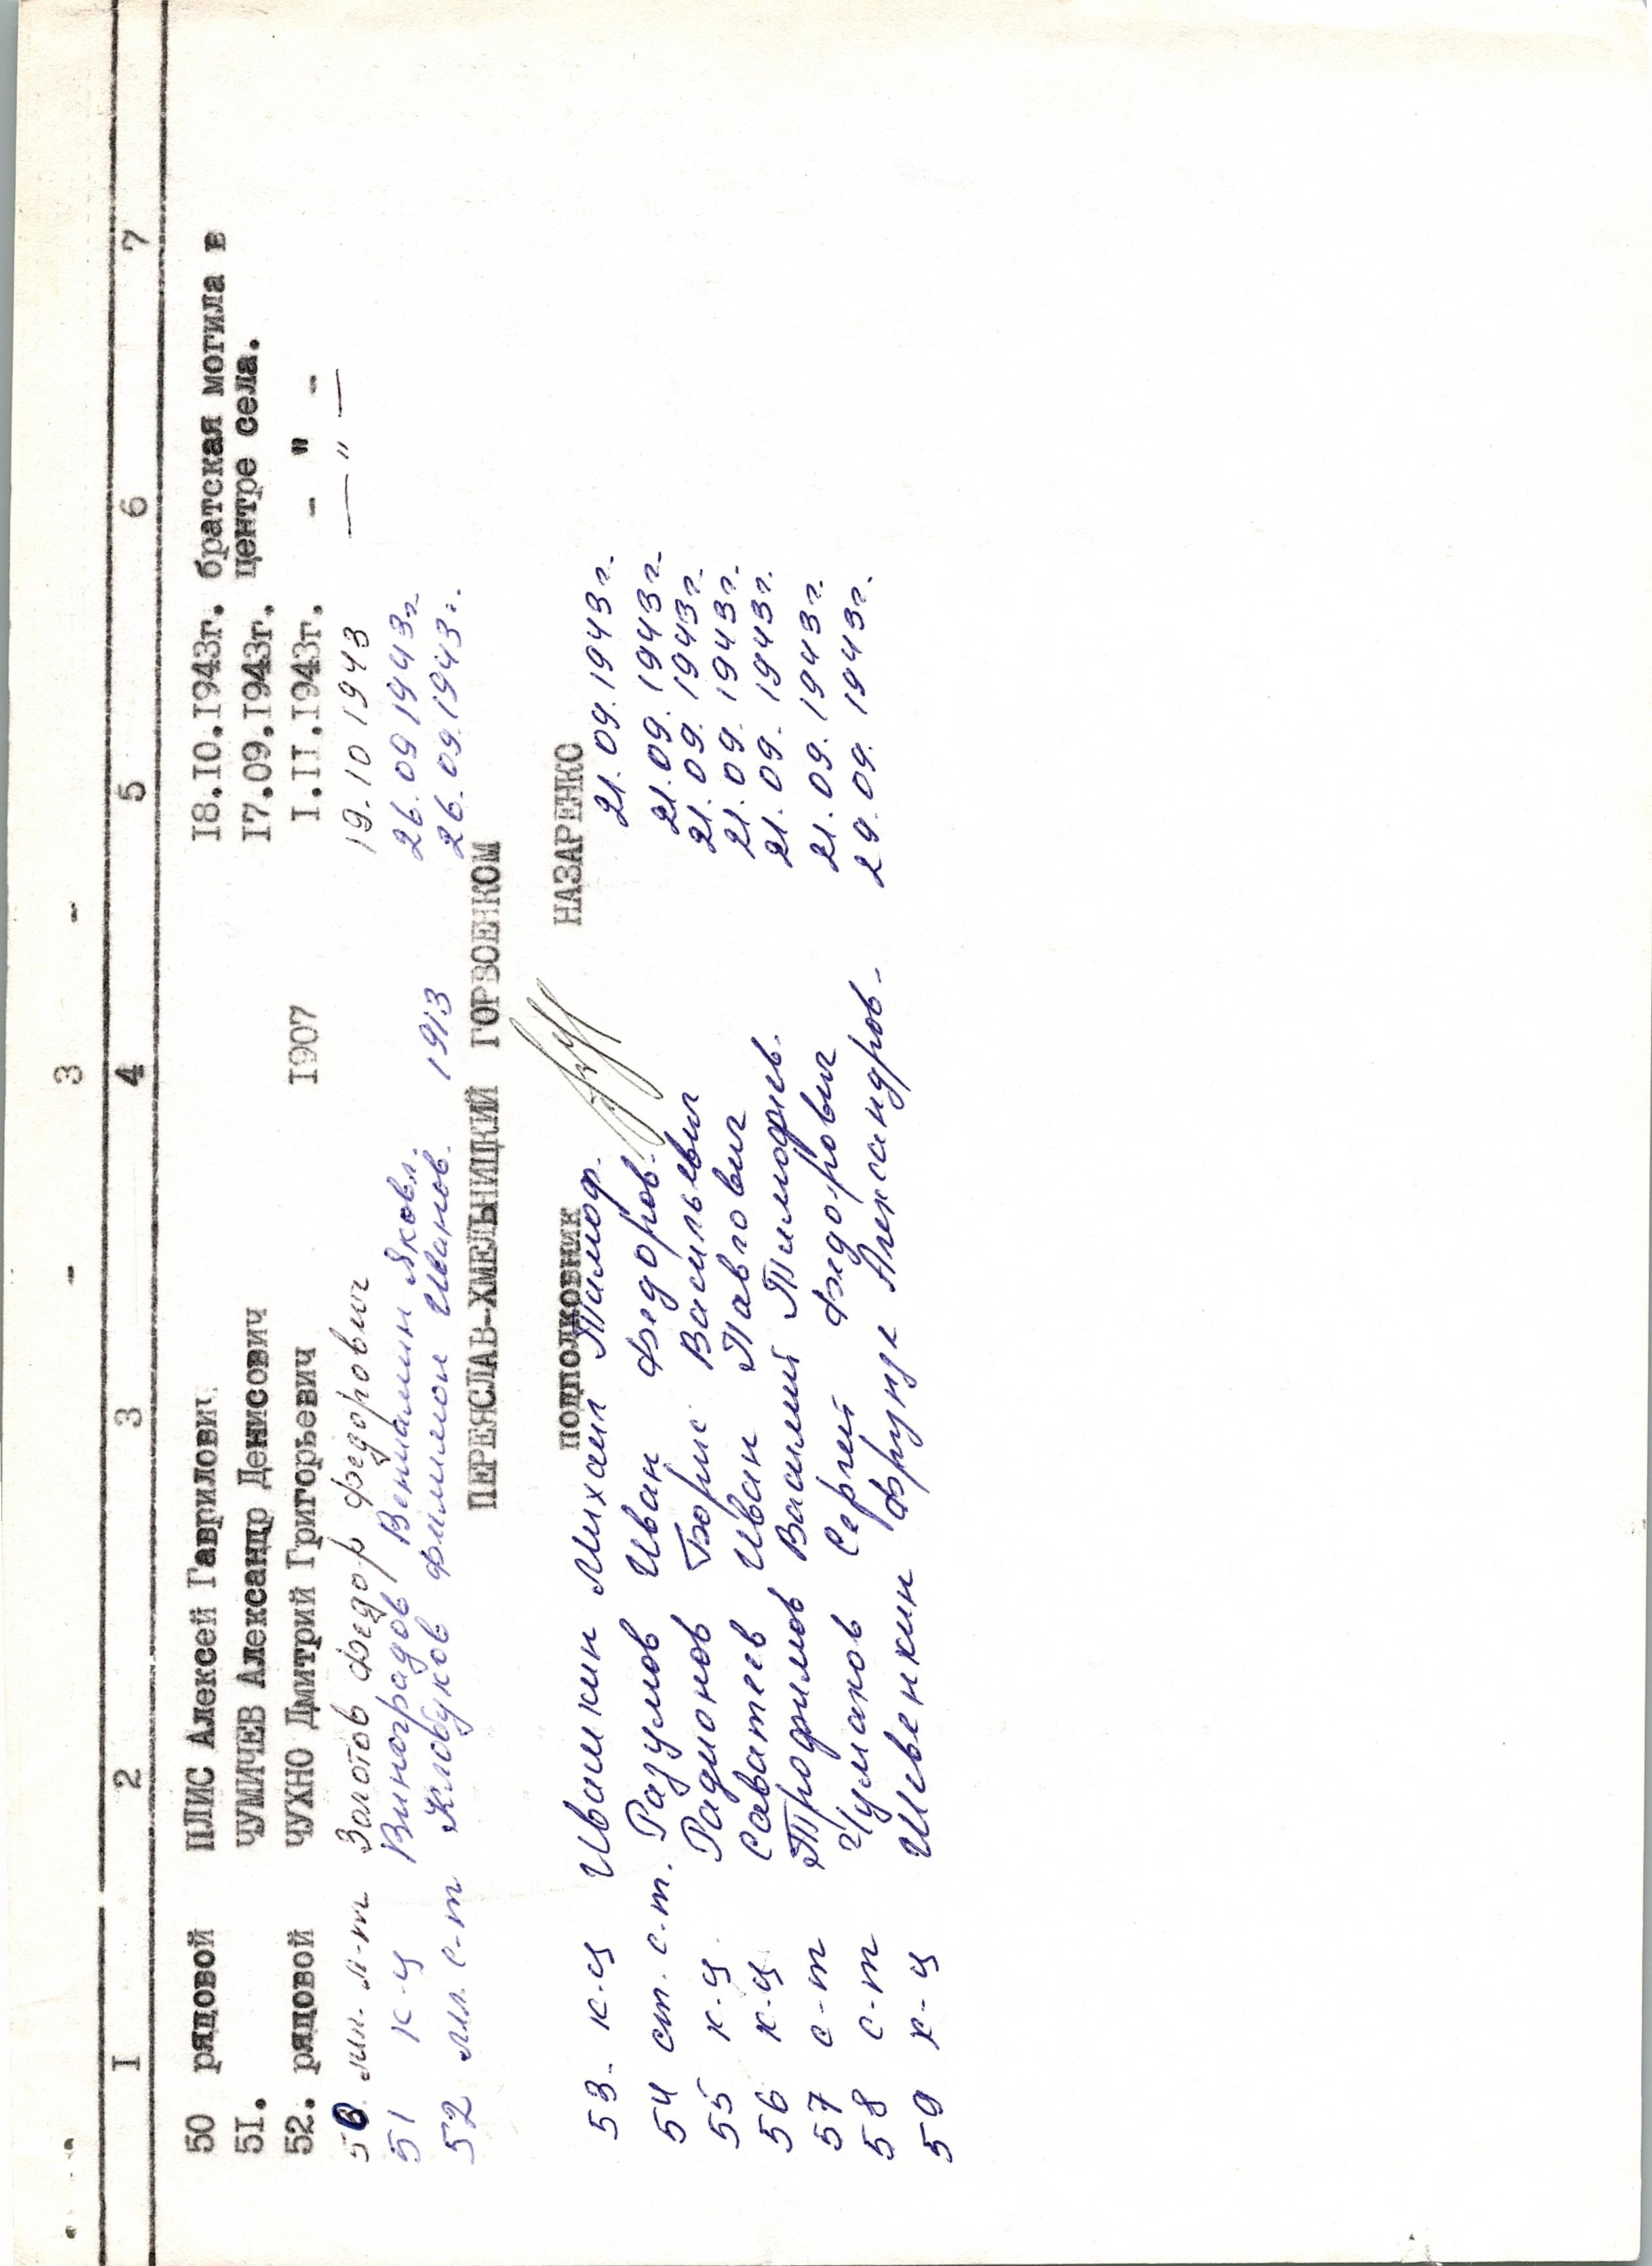 - 3 -
I 2 3 4 5 6 7
50 рядовой ПЛИС Алексей Гаврилович 18.IO.I943г. братская могила в
5I. ЧУМИЧЕВ Александр Денисович I7.09.I943г. центре села.
52. рядовой ЧУХНО Дмитрий Григорьевич I907 I.II.I943г. - " -
50. мл. л-т Золотов Федор Федорович 19.10 1943 — " —
51 к-ц Виноградов Вениамин Яковл. 26.09 1943г.
52 мл. с-т Клобуков Филимон Иванов. 1913 26.09.1943г.
ПЕРЕЯСЛАВ-ХМЕЛЬНИЦКИЙ ГОРВОЕНКОМ
ПОДПОЛКОВНИК НАЗАРЕНКО
53. к-ц Ивашкин Михаил Тимоф. 21.09.1943г.
54 ст. с-т. Разумов Иван Федоров. 21.09.1943г.
55 к-ц Радионов Борис Васильевич 21.09.1943г.
56 к-ц Саватеев Иван Павлович 21.09.1943г.
57 с-т Трофимов Василий Тимофеев. 21.09.1943г.
58 с-т Чумаков Сергей Федорович 21.09.1943г.
59 к-ц Ивенкин Фрунзе Александров. 29.09.1943г.